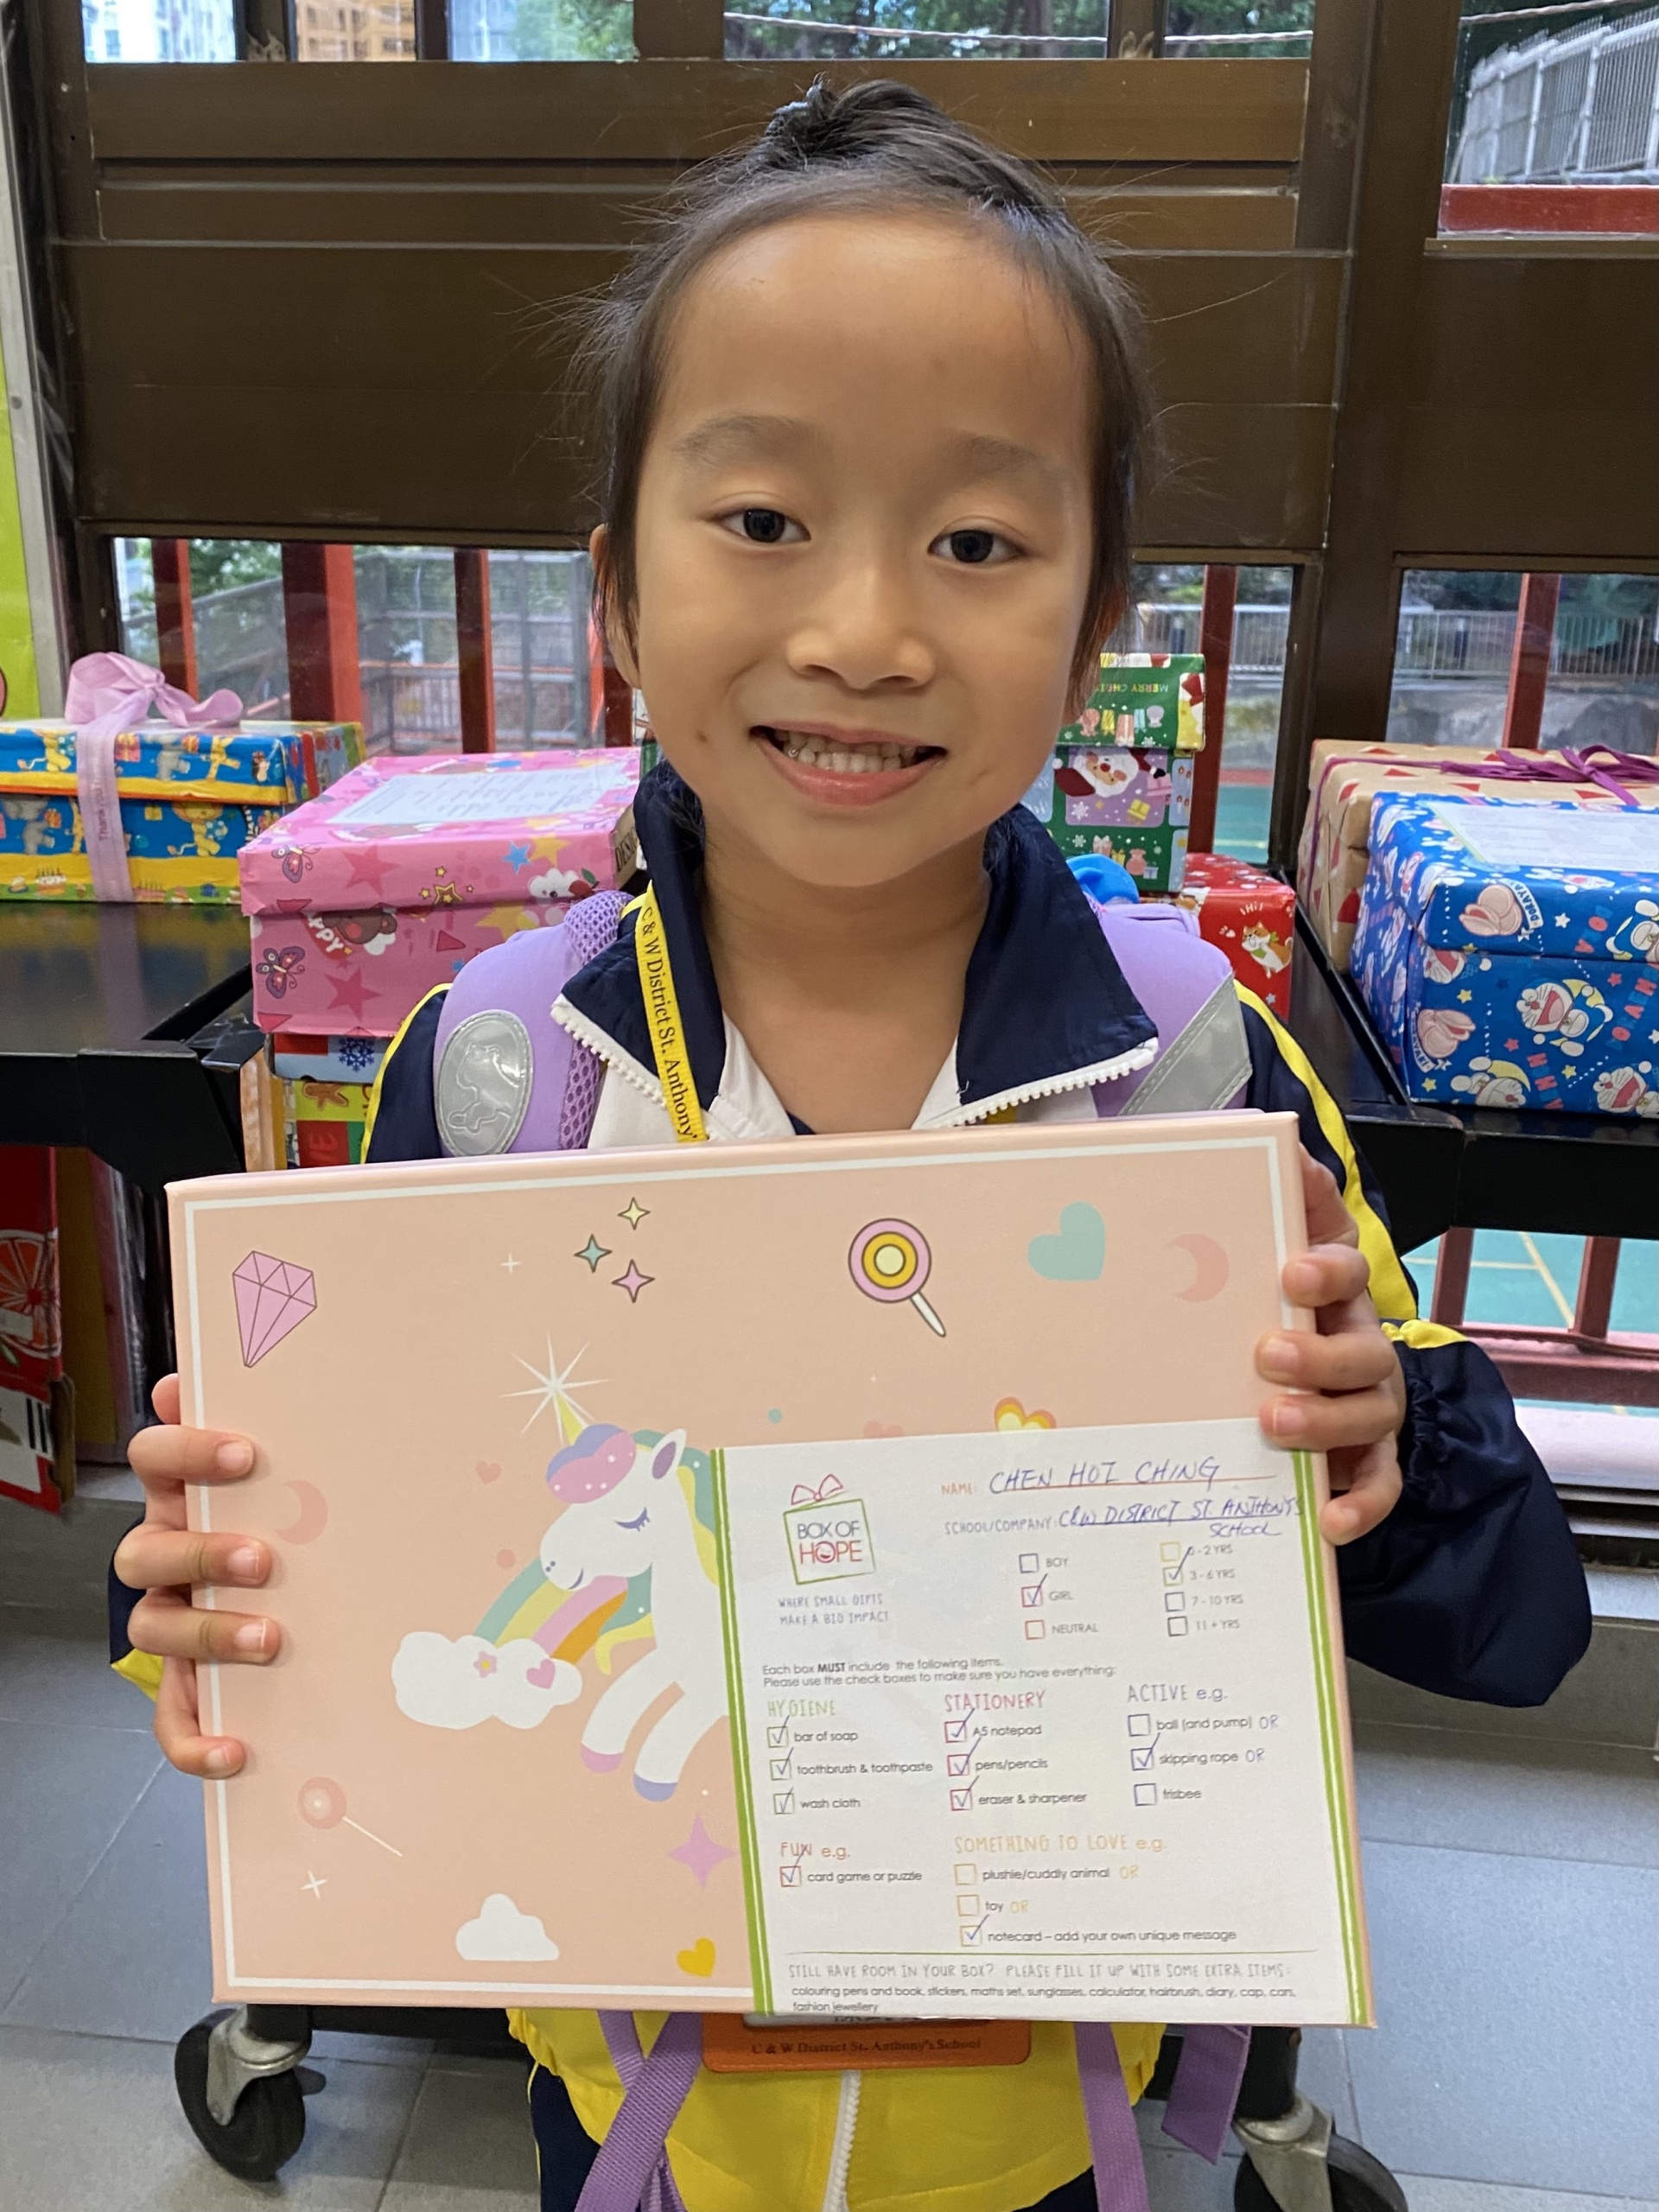 MERRY CHRI
HAPPY
Thank
Hi!
C & W District St. Anthony'
BOX OF
HOPE
WHERE SMALL GIFTS
MAKE A BIG IMPACT
NAME: CHEN HOI CHING
SCHOOL/COMPANY: C&W DISTRICT ST. ANTHONY'S
SCHOOL
BOY
GIRL
NEUTRAL
0-2 YRS
3-6 YRS
7-10 YRS
11+ YRS
Each box MUST include the following items.
Please use the check boxes to make sure you have everything:
HYGIENE
bar of soap
toothbrush & toothpaste
wash cloth
STATIONERY
A5 notepad
pens/pencils
eraser & sharpener
ACTIVE e.g.
ball (and pump) OR
skipping rope OR
frisbee
FUN e.g.
card game or puzzle
SOMETHING TO LOVE e.g.
plushie/cuddly animal OR
toy OR
notecard – add your own unique message
STILL HAVE ROOM IN YOUR BOX? PLEASE FILL IT UP WITH SOME EXTRA ITEMS:
colouring pens and book, stickers, maths set, sunglasses, calculator, hairbrush, diary, cap, cars,
fashion jewellery
C & W District St. Anthony's School